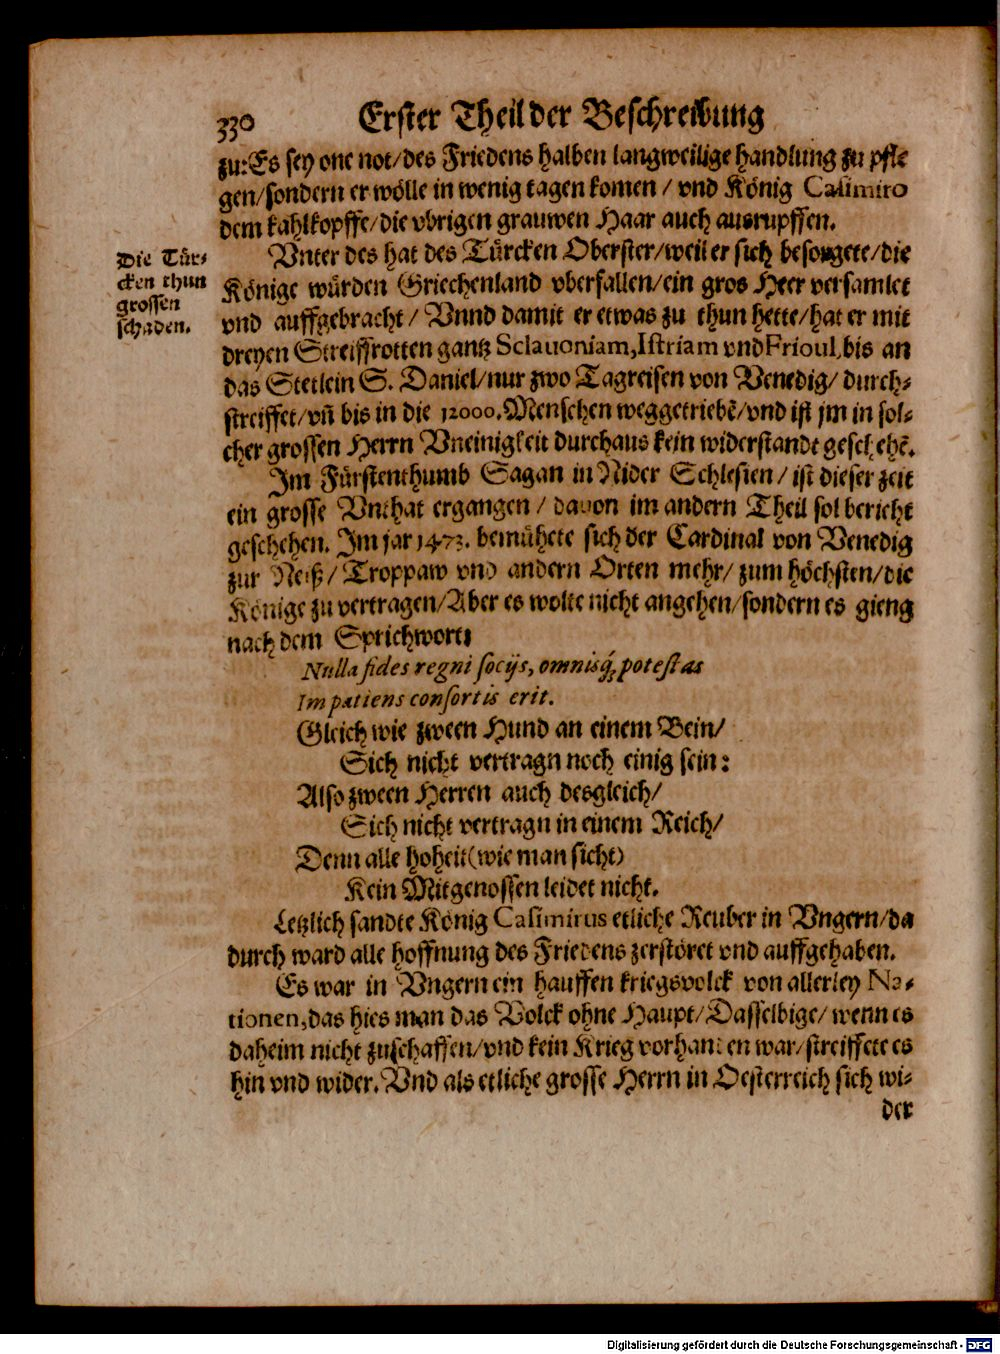 330 Erster Theil der Beschreibung
zu: Es sey one not/des Friedens halben langweilige handlung zu pfle
gen/sondern er wölle in wenig tagen komen / vnd König Casimiro
dem kahlkopffe/die vbrigen grauwen Haar auch ausrupffen.
Vnter des hat des Türcken Oberster/weil er sich besorgete/die
Die Tür-
cken thun
grossen
schaden.
Könige würden Griechenland vberfallen/ein gros Heer versamlet
vnd auffgebracht / Vnnd damit er etwas zu thun hette/hat er mit
dreyen Streiffrotten gantz Sclauoniam, Istriam vnd Frioul, bis an
das Stetlein S. Daniel/nur zwo Tagreisen von Venedig/ durch-
streiffet/vñ bis in die 12000. Menschen weggetriebẽ/vnd ist jm in sol-
cher grossen Herrn Vneinigkeit durchaus kein widerstandt geschehẽ.
Im Fürstenthumb Sagan in Nider Schlesien / ist dieser zeit
ein grosse Vnthat ergangen / davon im andern Theil sol bericht
geschehen. Im jar 1473. bemühete sich der Cardinal von Venedig
zur Neiß/ Troppaw vnd andern Orten mehr/ zum höchsten/die
Könige zu vertragen/Aber es wolte nicht angehen/sondern es gieng
nach dem Sprichwort:
Nulla fides regni socijs, omnisq́; potestas
Impatiens consortis erit.
Gleich wie zween Hund an einem Bein/
Sich nicht vertragn noch einig sein:
Also zween Herren auch desgleich/
Sich nicht vertragn in einem Reich/
Denn alle hoheit (wie man sicht)
Kein Mitgenossen leidet nicht.
Letzlich sandte König Casimirus etliche Reuber in Vngern/da
durch ward alle hoffnung des Friedens zerstöret vnd auffgehaben.
Es war in Vngern ein hauffen kriegsvolck von allerley Na-
tionen, das hies man das Volck ohne Haupt/Dasselbige/ wenn es
daheim nicht zuschaffen/vnd kein Krieg vorhanden war/streiffete es
hin vnd wider. Vnd als etliche grosse Herrn in Oesterreich sich wi-
der
Digitalisierung gefördert durch die Deutsche Forschungsgemeinschaft - DFG